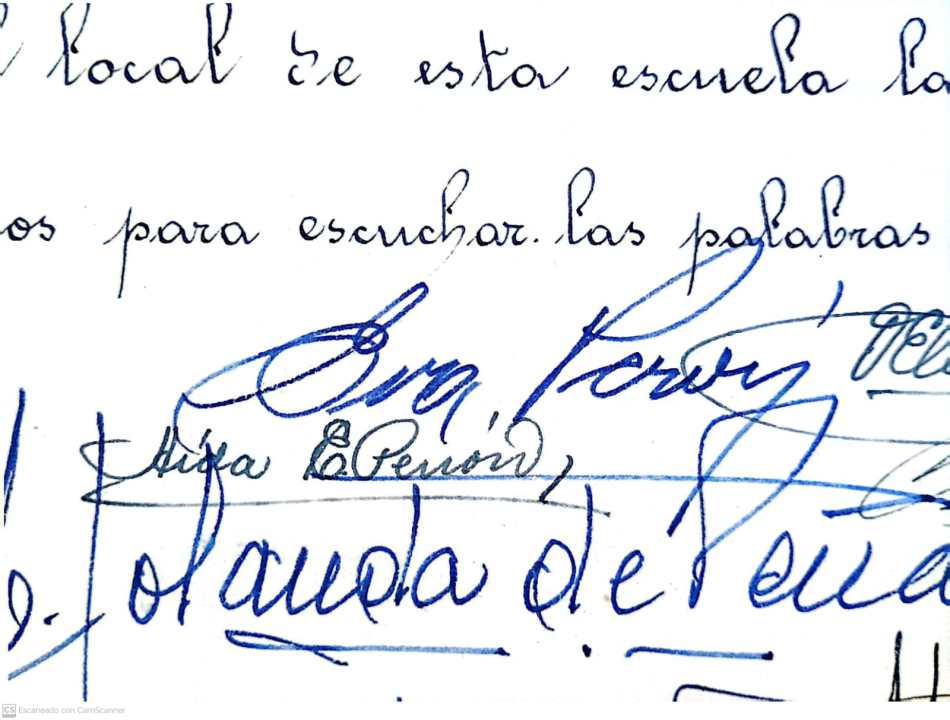 local de esta escuela la
os para escuchar las palabras
Eva Perón
Aída E. Perón,
Yolanda de
CS Escaneado con CamScanner